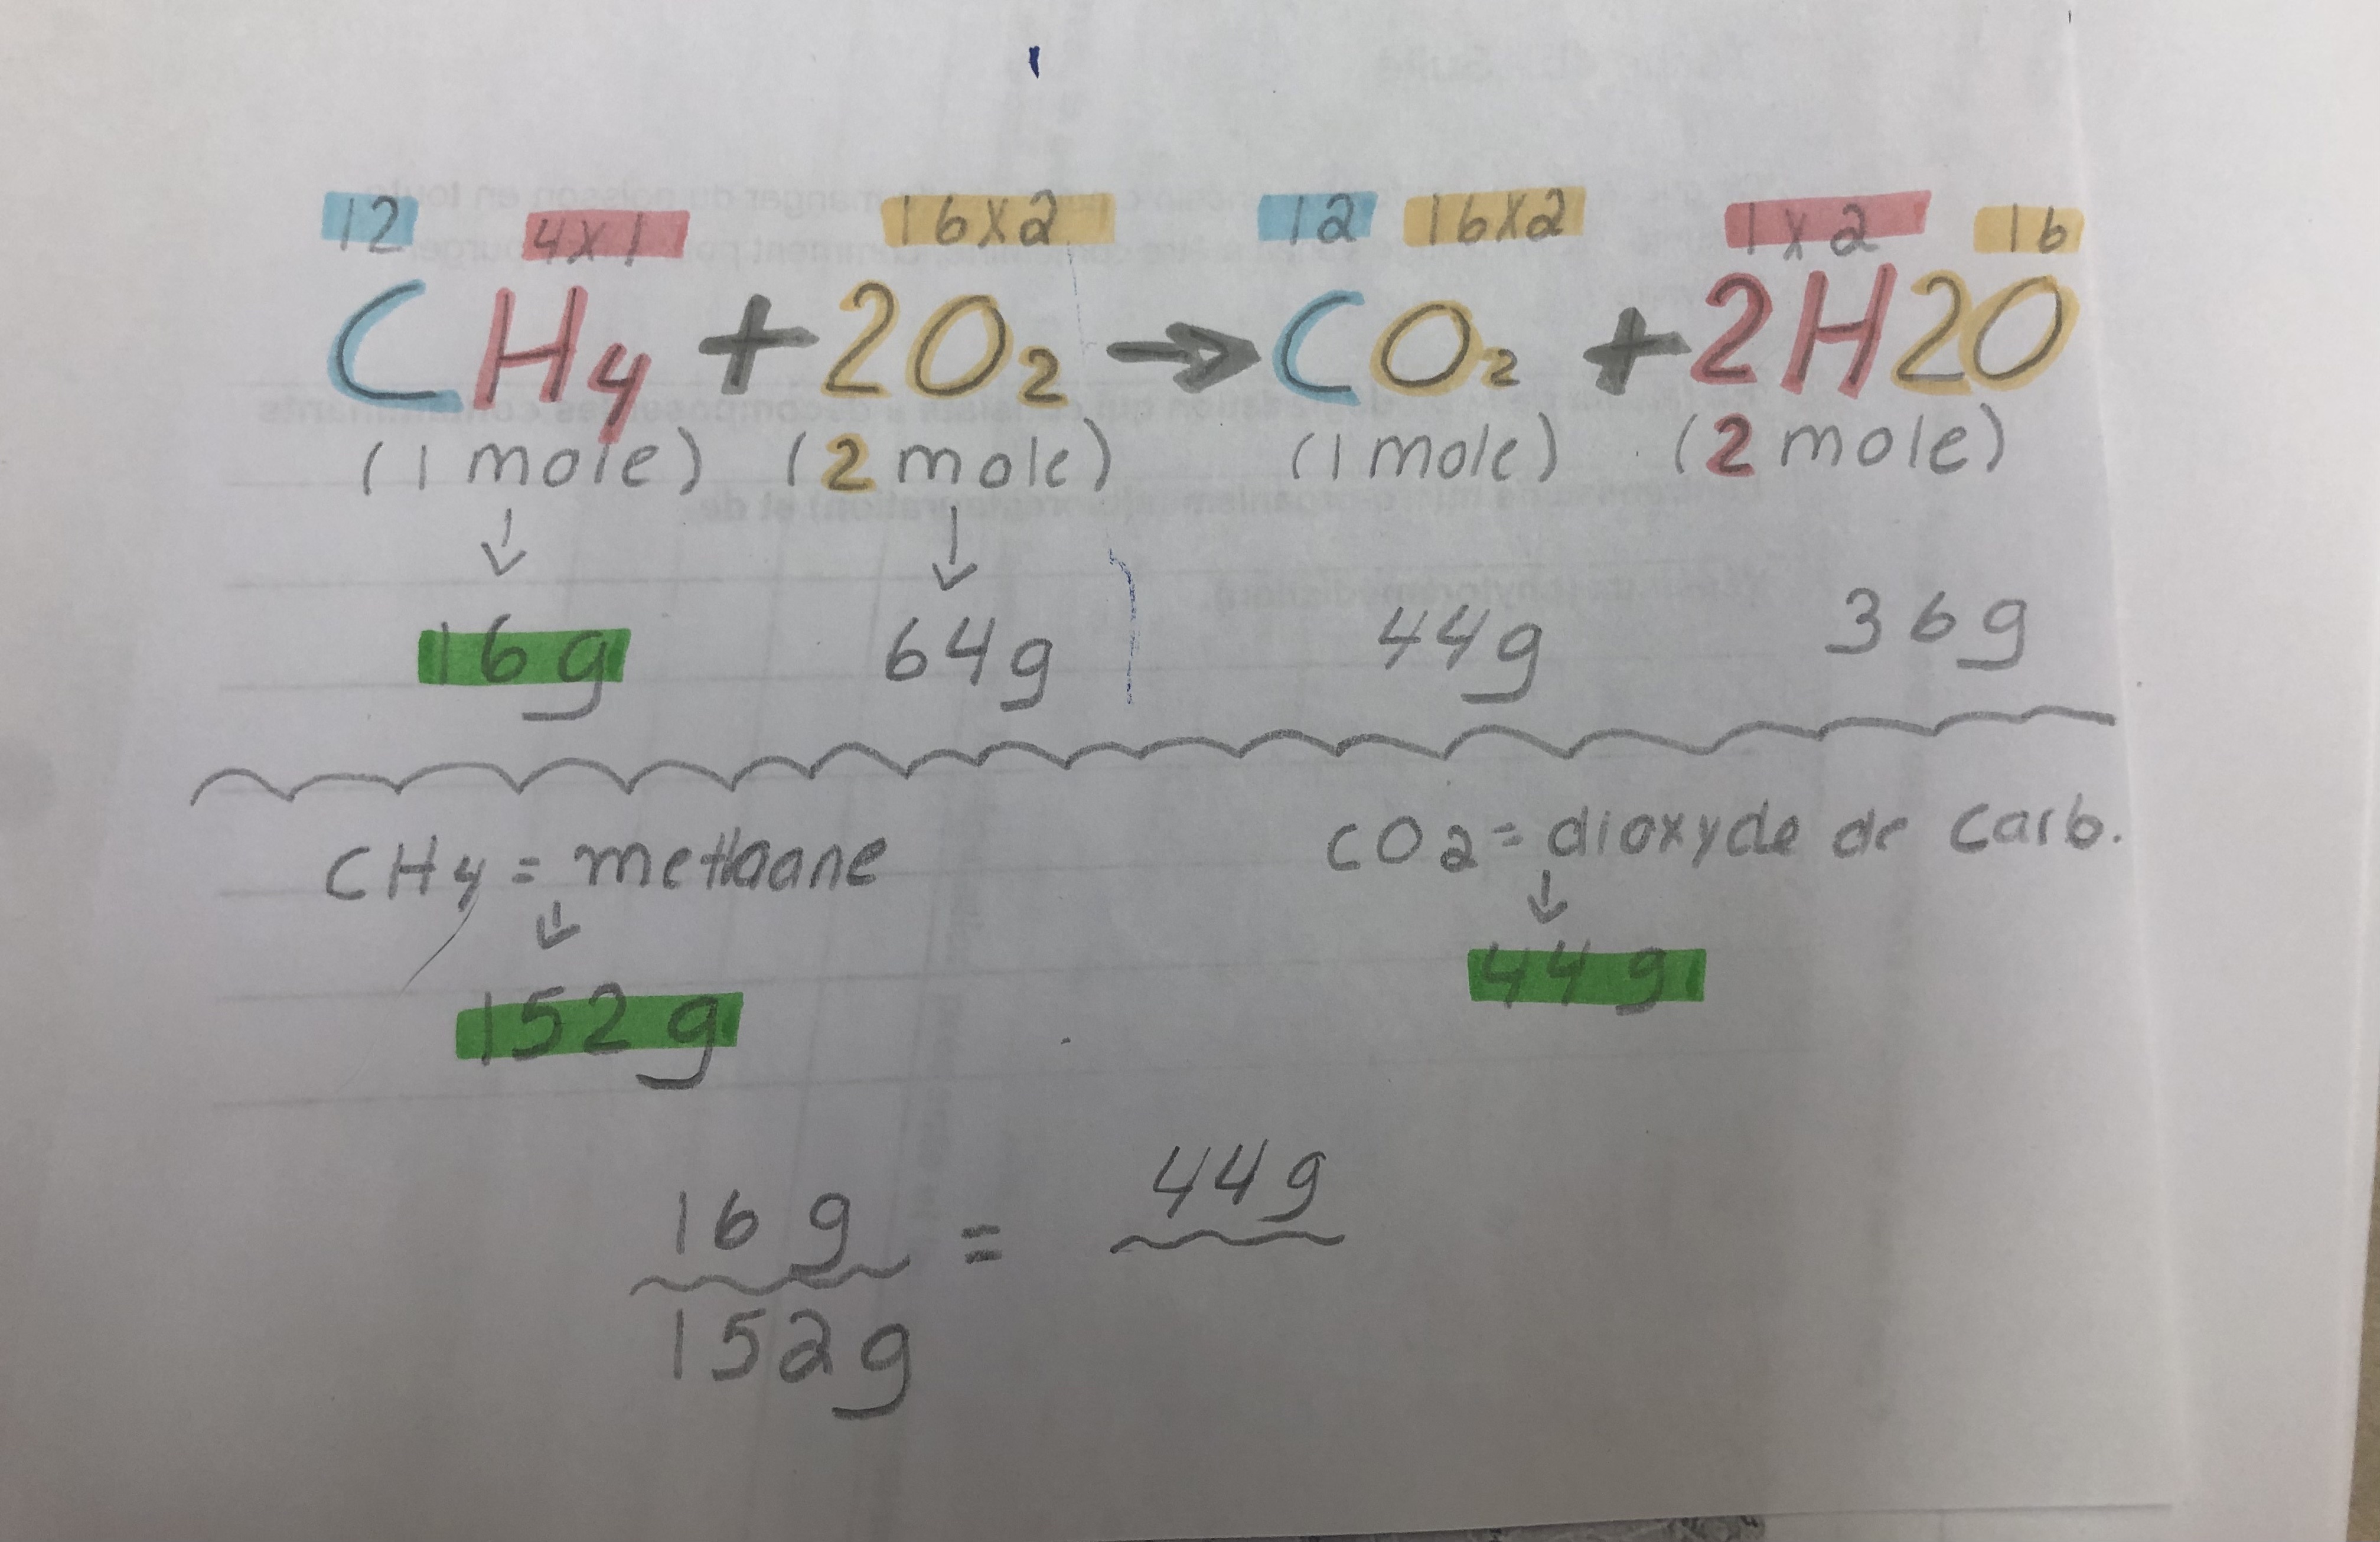 12 4x1 16x2 12 16x2 1x2 16
CH4 + 2O2 → CO2 + 2H2O
(1 mole) (2 mole) (1 mole) (2 mole)
↓ ↓
16g 64g 44g 36g
CH4 = methaane CO2 = dioxyde de carb.
↓ ↓
152g 44g
16g = 44g
152g